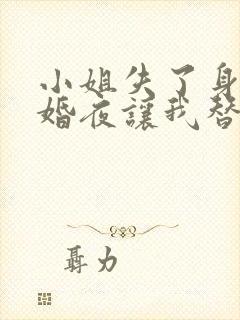 小姐失了身
婚夜讓我替
聶力